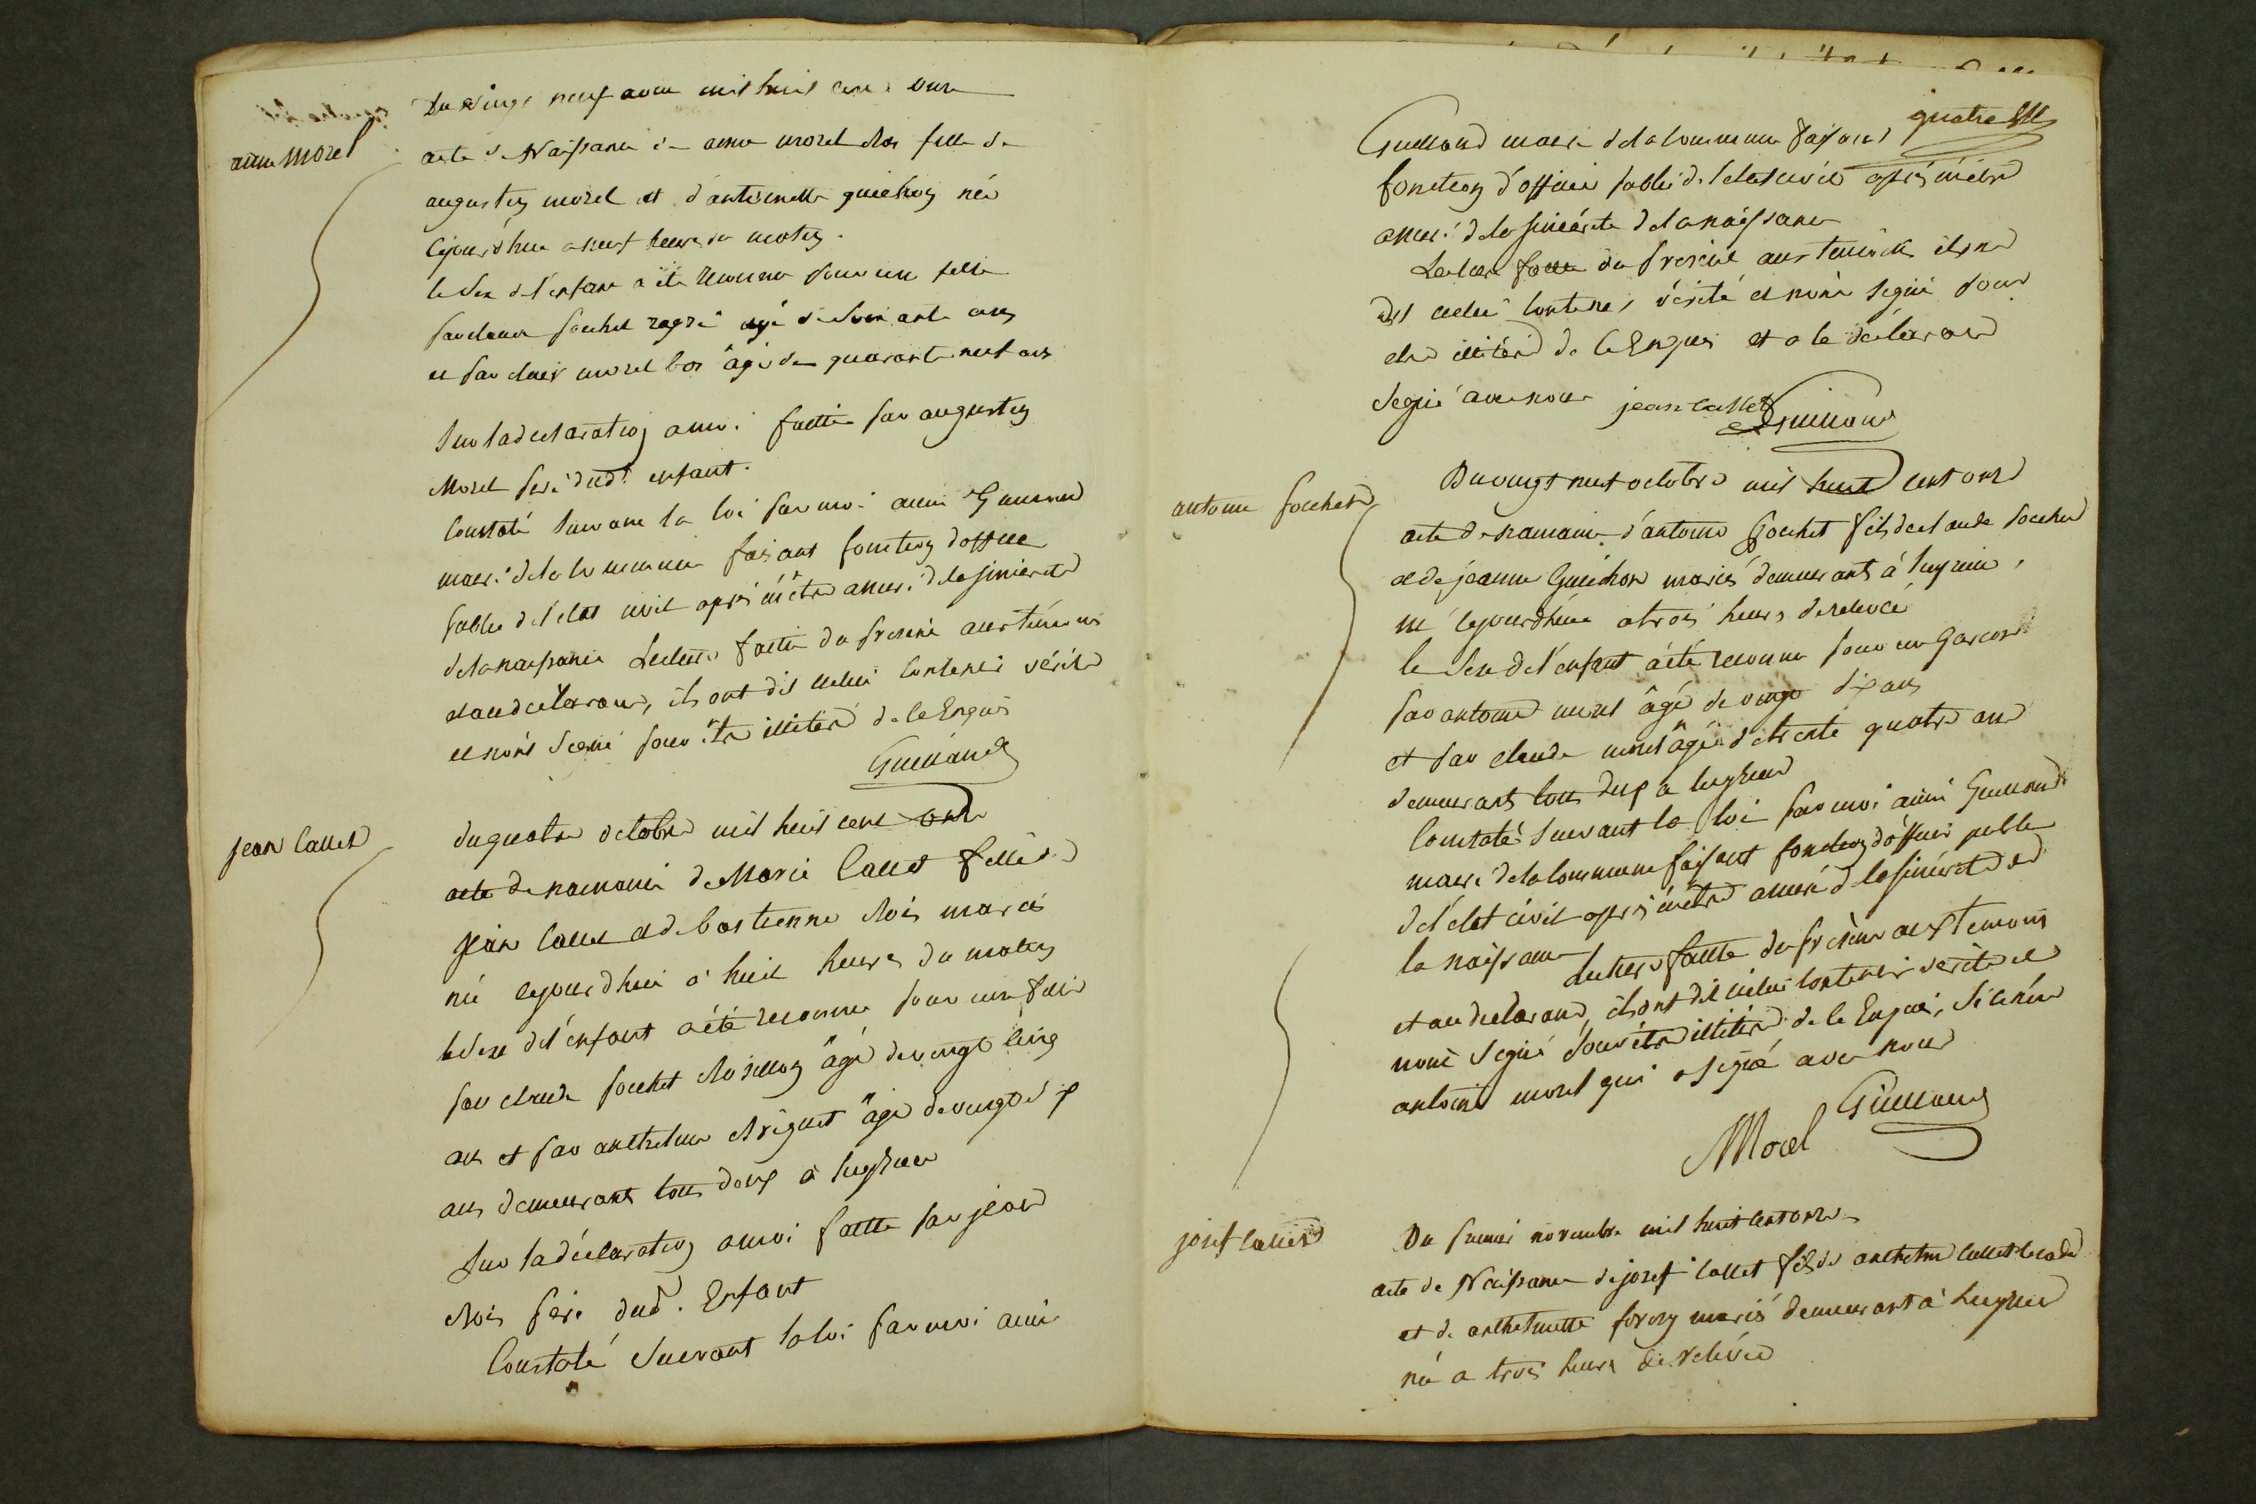 Du vingt neuf aout mil huit cent onze
anne Morel
acte de Naissance de anne morel bos fille de
augustin morel et d'antoinette guichon née
cejourd'hui a neuf heures du matin.
le sexe de l'enfant a été reconnu pour une fille
par claude pochet âgé de soixante ans
et par claude morel bos âgé de quarante neuf ans
Sur la declaration a moi faitte par augustin
Morel pere dud. enfant.
Constaté suivant la loi par moi aimé Guilland
maire de la commune faisant fonction d'officier
public de l'etat civil après m'être assuré de la sincerité
de la naissance Lecture faitte du present aux témoins
et au déclarant, ils ont dit icelui contenir vérité
et n'ont signé pour être illitéré de ce Enquis
Guilland
jean Callet
du quatre octobre mil huit cent onze
acte de naissance de Marie Callet fille de
jean Callet et de bastienne bois mariés
née cejourd'hui à huit heures du matin
le sexe de l'enfant a été reconnu pour une fille
par claude pochet âgé de vingt cinq
ans et par anthelme âgé de vingt six
ans demeurants tous deux à
Sur la déclaration a moi faitte par jean
père dud. Enfant
Constaté Suivant la loi par moi aimé
quatre
Guilland maire de la commune faisant
fonction d'officier public de l'etat civil après m'être
assuré de la sincérité de la naissance
Lecture faitte du present aux temoins ils ont
dit icelui contenir vérité et n'ont signé pour
être illitéré de ce Enquis et a le déclarant
signé avec nous jean callet
Guilland
antoine pochet
Du vingt neuf octobre mil huit cent onze
acte de naissance d'antoine Pochet fils de claude pochet
et de jeanne Guichon mariés demeurants à
né cejourdhui a trois heures de relevée
le Sexe de l'enfant a été reconnu pour un Garcon
par antoine morel âgé de vingt six ans
et par claude morel âgé de trente quatre ans
demeurants tous deux a
Constaté suivant la loi par moi aimé Guilland
maire de la commune faisant fonction d'officier public
de l'etat civil après m'être assuré de la sincérité de
la naissance Lecture faitte du présent aux temoins
et au declarant, ils ont dit icelui contenir vérité et
n'ont signé pour être illitéré de ce Enquis, si ce n'est
antoine morel qui a signé avec nous
Guilland
Morel
josef Callet
Du premier novembre mil huit cent onze
acte de Naissance de josef Callet fils de anthelme Callet le cadet
et de anthelmette mariés demeurant à
né a trois heures de relevée